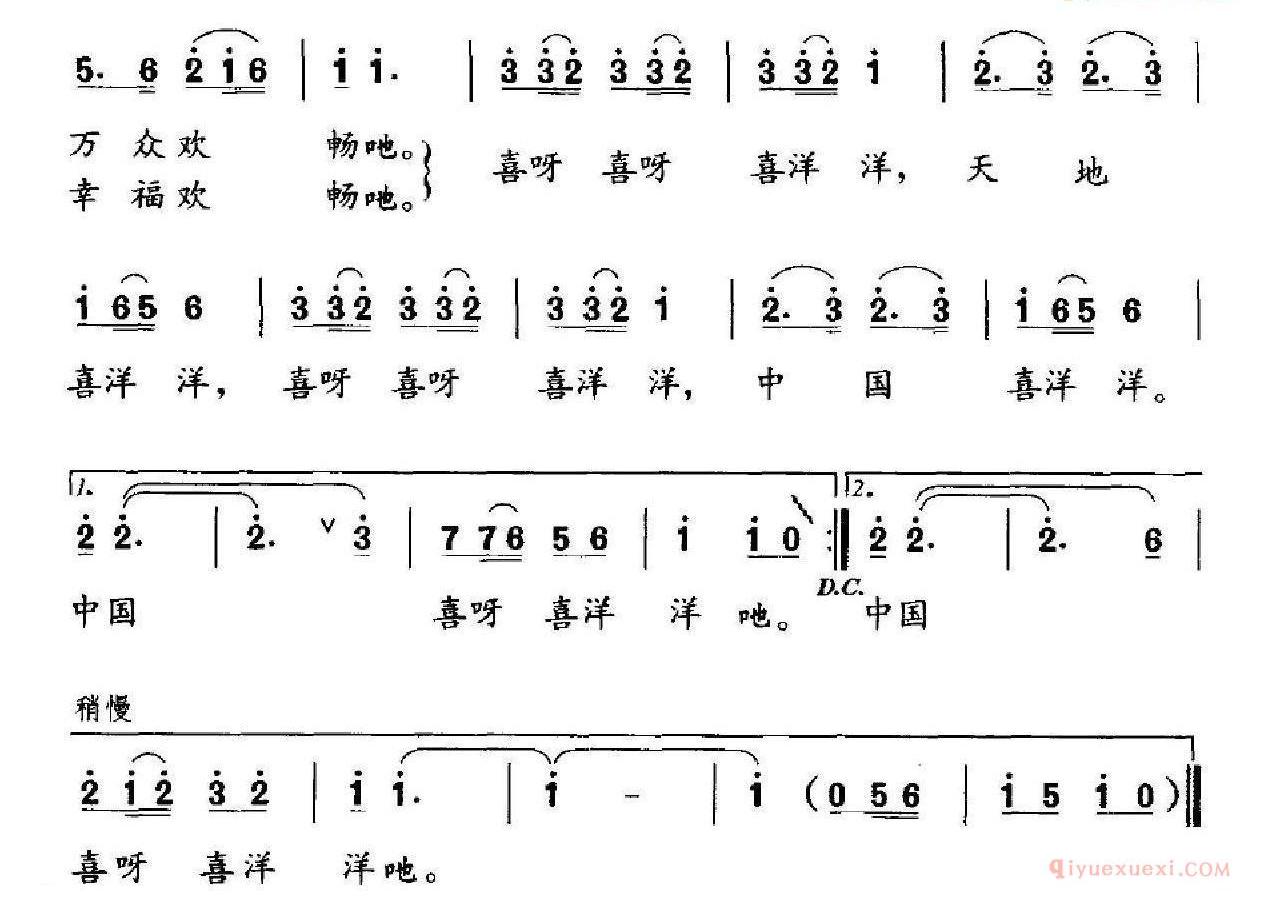 5. 6 2 1 6 | 1 1. | 3 3 2 3 3 2 | 3 3 2 1 | 2. 3 2. 3 |
万 众 欢 畅吔。 喜呀 喜呀 喜洋 洋， 天 地
幸 福 欢 畅吔。
1 6 5 6 | 3 3 2 3 3 2 | 3 3 2 1 | 2. 3 2. 3 | 1 6 5 6 |
喜洋 洋， 喜呀 喜呀 喜洋 洋， 中 国 喜洋 洋。
1. 2.
2 2. | 2. ∨ 3 | 7 7 6 5 6 | 1 1 0 :‖ 2 2. | 2. 6 |
D.C.
中国 喜呀 喜洋 洋 吔。 中国
稍慢
2 1 2 3 2 | 1 1. | 1 - | 1 (0 5 6 | 1 5 1 0) ‖
喜呀 喜洋 洋吔。
qiyuexuexi.COM